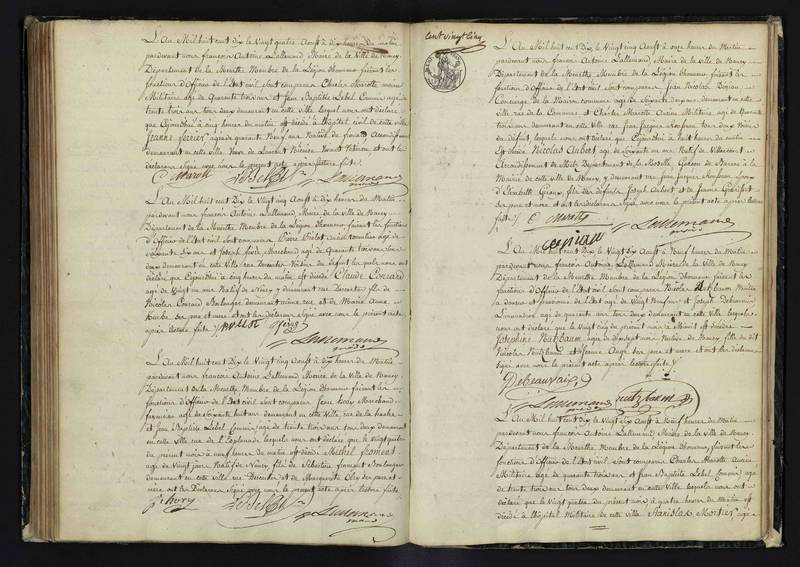 L'An Mil huit cent Dix le Vingt quatre Aoust à dix heures du matin
pardevant nous françois Antoine Lallemand, Maire de la Ville de Nancy
Département de la Meurthe Membre de la Légion d'honneur faisant les
fonctions d'Officier de l'Etat civil sont comparus Charles Marotte
Militaire agé de quarante trois ans et Jean Baptiste Lebel Commis agé
de trente trois ans tous deux demeurant en cette ville lesquels nous ont déclaré
que Cejourd'hui à heures du matin est décédé à l'hôpital civil de cette ville
Jeanne agée de quarante Neuf ans Native de
demeurant en cette ville Veuve de Laurent et ont les
déclarans Signé avec nous le présent acte après lecture faite
C Marotte Lebel Lallemand
maire
L'An Mil huit cent Dix le Vingt cinq Aoust à dix heures du Matin
pardevant nous françois Antoine Lallemand Maire de la Ville de Nancy
Département de la Meurthe Membre de la Légion d'honneur faisant les fonctions
d'Officier de l'Etat civil sont comparus Pierre agé de
soixante dix ans et Joseph Marchand agé de quarante trois ans tous
deux demeurant en cette ville lesquels nous ont
déclaré que Cejourd'hui à cinq heures du matin, est décédé Claude Conrard
agé de Vingt un ans Natif de Nancy y demeurant rue fils de
Nicolas Conrard Boulanger demeurant même rue et de Marie Anne
ses père et mère et ont les déclarans Signé avec nous le présent acte
après lecture faite
Lallemand
maire
L'An Mil huit cent Dix le Vingt cinq Aoust à dix heures du Matin
pardevant nous françois Antoine Lallemand Maire de la Ville de Nancy
Département de la Meurthe Membre de la Légion d'honneur faisant les
fonctions d'Officier de l'Etat civil sont comparus Jean Marchand
agé de soixante huit ans demeurant en cette Ville, rue de la hache
et Jean Baptiste Lebel Commis agé de trente trois ans tous deux demeurant
en cette ville, rue de l'Esplanade lesquels nous ont déclaré que le Vingt quatre
du présent mois à neuf heures du matin est décédé Michel froment
agé de Vingt jours Natif de Nancy, fils de Sébastien froment Boulanger
demeurant en cette Ville et de Marguerite ses père et
mère ont les déclarans Signé avec nous le présent acte après lecture faite
Lebel Lallemand
maire
Cent vingt Cinq
L'An Mil huit cent Dix le Vingt cinq Aoust à onze heures du Matin
pardevant nous françois Antoine Lallemand, Maire de la Ville de Nancy
Département de la Meurthe Membre de la Légion d'honneur faisant les
fonctions d'Officier de l'Etat civil, sont comparus Jean Nicolas
Concierge de la Maison commune agé de soixante deux ans demeurant en cette
ville rue de la Commune et Charles Marotte Ancien Militaire agé de quarante
trois ans demeurant en cette Ville rue Jean Jacques Rousseau tous deux
du défunt, lesquels nous ont déclaré que Cejourd'hui à huit heures du matin
est décédé Nicolas Aubert agé de soixante un ans Natif de
Arrondissement de Metz Département de la Moselle, Garçon de Bureau à la
Mairie de cette ville de Nancy, y demeurant rue Jean Jacques Rousseau Epoux
d'Elisabeth fils des défunts Joseph Aubert et de Jeanne
ses père et mère et ont les déclarans Signé avec nous le présent acte après lecture
faite C Marotte Lallemand
maire
L'An Mil huit cent Dix le Vingt Six Aoust à Neuf heures du Matin
pardevant nous françois Antoine Lallemand Maire de la Ville de Nancy
Département de la Meurthe Membre de la Légion d'honneur faisant les
fonctions d'Officier de l'Etat civil sont comparus Nicolas Nutzbaum
agé de Vingt Neuf ans et Joseph Debeauvais
Limonadier agé de quarante un ans tous deux demeurant en cette Ville lesquels
nous ont déclaré que le Vingt cinq du présent mois à Minuit est décédée
Josephine Nutzbaum agée de dix sept mois Native de Nancy fille du dit
Nicolas Nutzbaum et de Jeanne ses père et mère et ont les déclarans
Signé avec nous le présent acte après lecture faite
Debeauvais
Lallemand nutzbaum
maire
L'An Mil huit cent Dix le Vingt Six Aoust à Neuf heures du Matin
pardevant nous françois Antoine Lallemand Maire de la Ville de Nancy
Département de la Meurthe Membre de la Légion d'honneur, faisant les
fonctions d'Officier de l'Etat civil sont comparus Charles Marotte Ancien
Militaire agé de quarante trois ans et Jean Baptiste Lebel Commis agé
de trente trois ans tous deux demeurant en cette Ville lesquels nous ont
déclaré que le Vingt quatre du présent mois à quatre heures du Matin est
décédé à l'hôpital Militaire de cette ville Stanislas Mortier agé